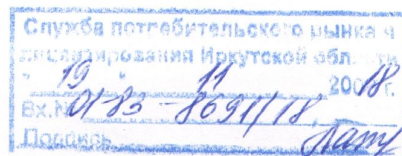 Служба потребительского рынка и
лицензирования Иркутской области
" 19 " 11 20018 г.
Вх.№ 01-83-8691/18
Подпись